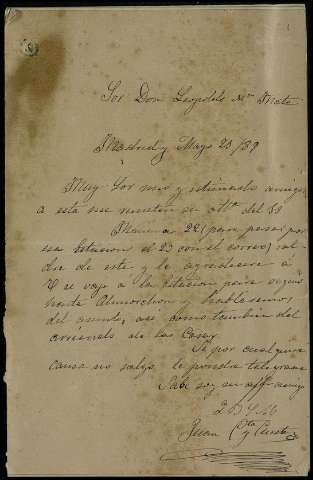 Sor Don Leopoldo Mn Mata
Madrid y Mayo 20/89
Muy Sor mio y estimado amigo
a esta su
Mañana 22 (para pasar por
esa Estacion el 23 con el correo) sal-
dre de este y le agradecere á
V se vaya a la Estacion para
hasta Almorchon y hablaremos
del asunto, asi como tambien del
arriendo de las Casas
Si por cualquiera
causa no salgo le pondre telegrama
Sabe soy su affo amigo
Q B S M
Juan